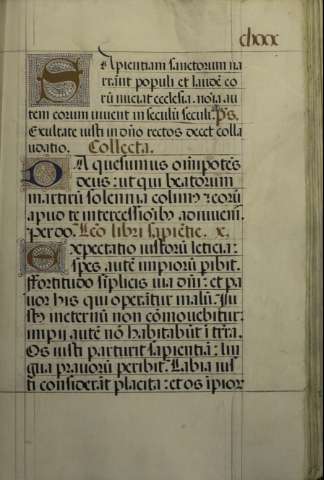 clxxx
Sapientiam sanctorum na
rrāt populi et laudē eo
rū nūciat ecclesia. noīa au
tem eorum uiuent in seculū seculi. Ps.
Exultate iusti in dño rectos decet colla
udatio. Collecta.
DA quesumus om̄ipotēs
deus: ut qui beatorum
martirū solemna colimꝰ: eorū
apud te intercessiōibꝰ adiuuem̄.
per do. Leō libri sapiētie. x.
Expectatio iustorū leticia:
spes autē impiorū pibit.
Fortitudo sīplicis uia dn̄i: et pa
uor his qui operātur malū. Iu
stꝰ ineternū non cōmouebitur:
impii autē nō habitabūt ī trā.
Os iusti parturit sapientiā: lin
gua prauorū peribit. Labia ius
ti considerāt placita: et os īpior